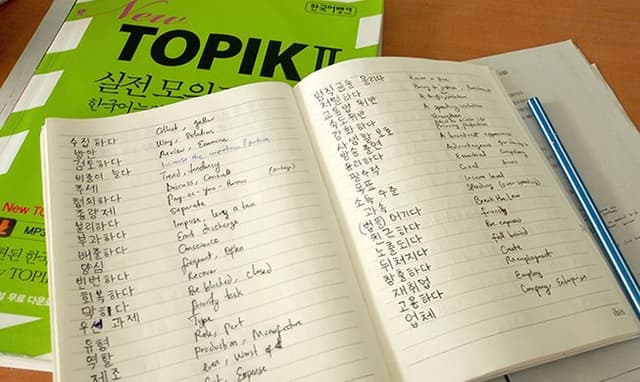 New
TOPIK II
한국어뱅크
실전 모의
New TO
MP3
수집하다 Collect, gather
방안 Way, Solution
검토하다 Review, Examine
비중이 높다 Increase the importance/portion
추세 Trend, tendency
협의하다 Discuss, Consult
종량제 Pay-as-you-throw (garbage)
분리하다 Separate
부과하다 Impose, levy a tax
배출하다 Emit discharge
양심 Conscience
빈번하다 frequent, often
회복하다 Recover
막히다 Be blocked, closed
우선 과제 Priority task
유형 Type
역할 Role, Part
제조 production, Manufacture
even, Worst
Cut, Expense
벌칙금을 올리다 Raise a fine
처벌하다
교통법 위반 A traffic violation
속도위반 A speeding violation
강화하다 Strengthen
사생활 보호 Privacy protection
방송 출연 Broadcast appearance
유리하다 Advantageous
필수적 Essential
목표 Goal
소득 수준 Income level
과속 Speeding (over speeding)
(법을) 어기다 Break the law
친근하다 friendly
노출되다 Be exposed
뒤처지다 fall behind
창출하다 Create
재취업 Reemployment
고용하다 Employ
업체 Company Enterprise
ibis